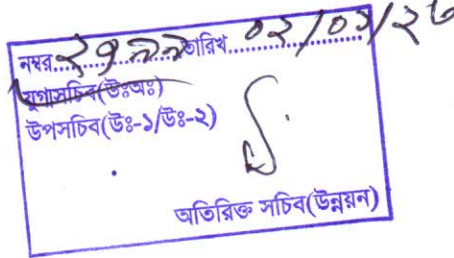 নম্বর.....২৭৯৯.....তারিখ.....০২/০১/২৬
যুগ্মসচিব(উঃঅঃ)
উপসচিব(উঃ-১/উঃ-২)
অতিরিক্ত সচিব(উন্নয়ন)